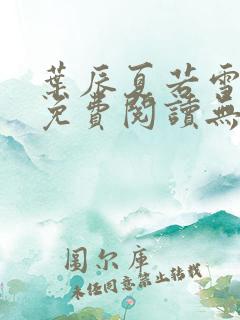 葉辰夏若雪
免費閱讀無
圖尔庫
未经同意禁止转载